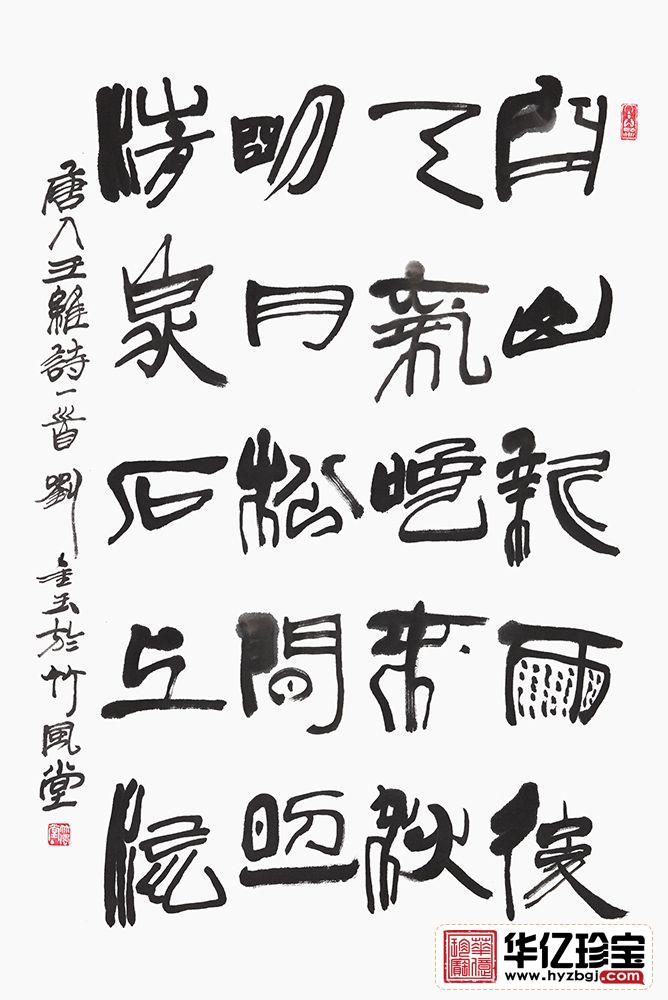 空山新雨後
天氣晚來秋
明月松間照
清泉石上流
唐人王維詩一首 劉金玉於竹風堂
华亿珍宝
www.hyzbgj.com